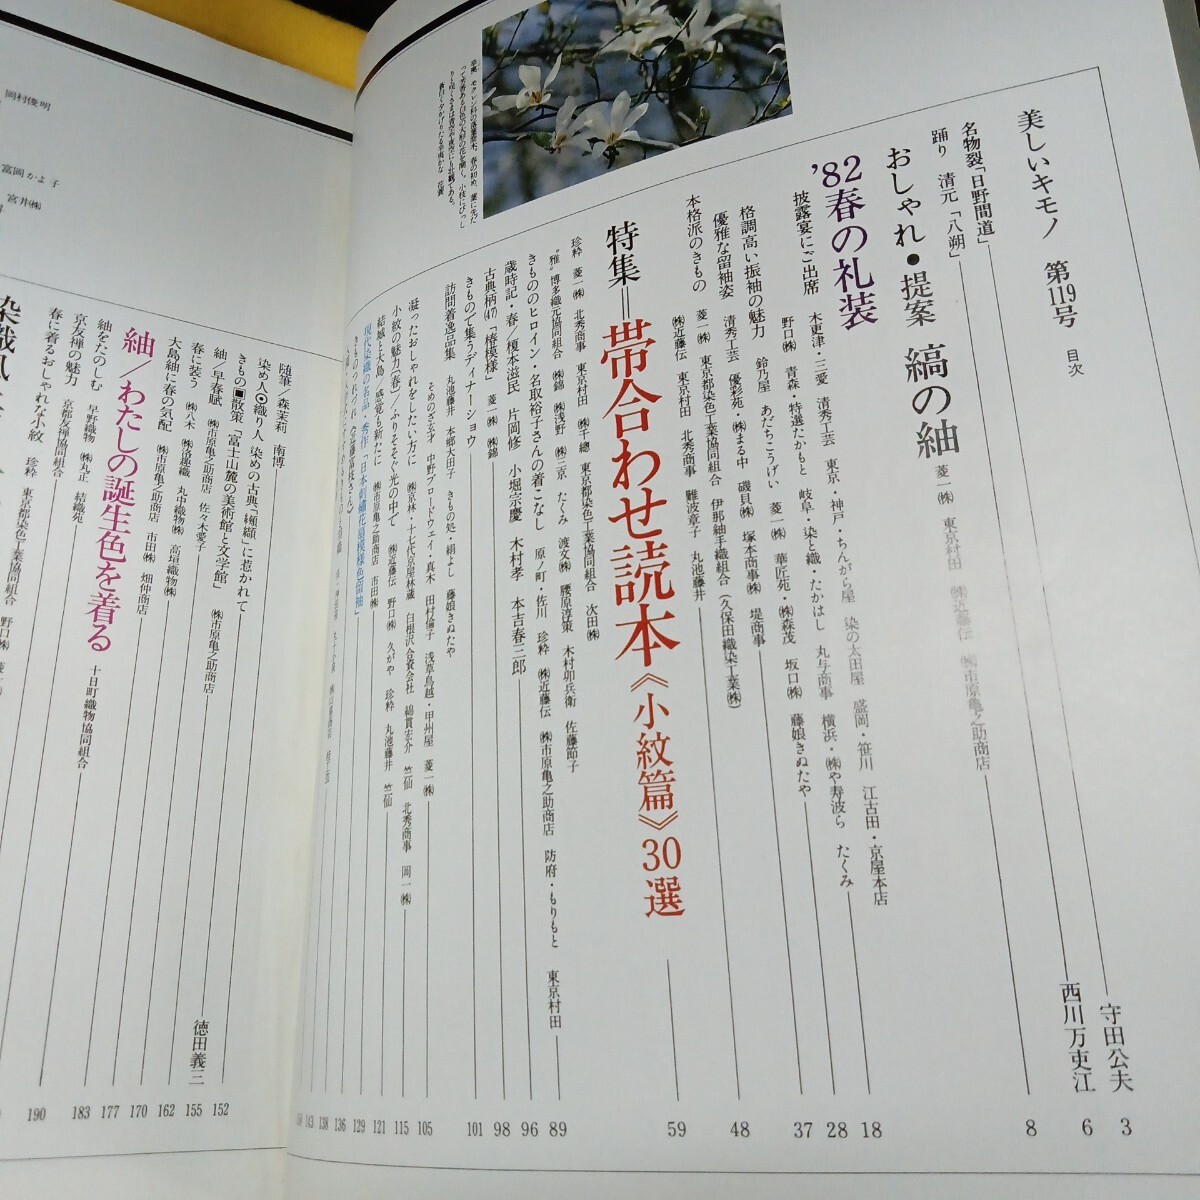 美しいキモノ 第119号 目次
名物裂「日野間道」 守田公夫 3
踊り 清元「八朔」 西川万吏江 6
おしゃれ●提案 縞の紬 菱一㈱ 東京村田 ㈱近藤伝 ㈱市原亀之助商店 8
'82春の礼装
披露宴にご出席 木更津・三愛 清秀工芸 東京・神戸・ちんがら屋 染の太田屋 盛岡・笹川 江古田・京屋本店 18
野口㈱ 青森・特選たかもと 岐阜・染と織・たかはし 丸与商事 横浜・㈱や寿波ら たくみ 28
格調高い振袖の魅力 鈴乃屋 あだちこうげい 菱一㈱ 華匠苑・㈱森茂 坂口㈱ 藤娘きぬたや 37
優雅な留袖姿 清秀工芸 優彩苑・㈱まる中 磯貝㈱ 塚本商事㈱ 堤商事 48
本格派のきもの 菱一㈱ 東京都染色工業協同組合 伊那紬手織組合(久保田織染工業㈱)
㈱近藤伝 東京村田 北秀商事 難波章子 丸池藤井
特集=帯合わせ読本《小紋篇》30選 59
珍粋 菱一㈱ 北秀商事 東京村田 ㈱千總 東京都染色工業協同組合 次田㈱
"雅"博多織元協同組合 ㈱錦 ㈱浅野 ㈱三京 たくみ 渡文㈱ 腰原淳策 木村卯兵衛 佐藤節子
きもののヒロイン・名取裕子さんの着こなし 原ノ町・佐川 珍粋 ㈱近藤伝 ㈱市原亀之助商店 防府・もりもと 東京村田 89
歳時記・春/榎本滋民 片岡修 小堀宗慶 木村孝 本吉春三郎 96
古典柄(47)「椿模様」 菱一㈱ ㈱錦 98
きもので集うディナーショウ 101
訪問着逸品集 丸池藤井 本郷大田子 きもの処・絹よし 藤娘きぬたや
そめのさゞ才 中野ブロードウェイ・真木 田村倫子 浅草鳥越・甲州屋 菱一㈱ 105
凝ったおしゃれをしたい方に ㈱京林・十七代京屋林蔵 白根沢合資会社 綿貫宏介 竺仙 北秀商事 岡一㈱ 115
小紋の魅力(春)/ふりそそぐ光の中で ㈱近藤伝 野口㈱ 久がや 珍粋 丸池藤井 竺仙 121
結城と大島/感覚も新たに ㈱市原亀之助商店 市田㈱ 129
136
138
143
随筆/森茉莉 南博
染め人◉織り人 染めの古典「纐纈」に惹かれて 152
きもの■散策「富士山麓の美術館と文学館」 徳田義三 155
紬/早春賦 ㈱市原亀之助商店 佐々木愛子 ㈱市原亀之助商店
春に装う ㈱八木 ㈱洛趣織 丸中織物㈱ 高垣織物㈱ 162
大島紬に春の気配 ㈱市原亀之助商店 市田㈱ 畑仲商店 170
紬/わたしの誕生色を着る 十日町織物協同組合 177
紬をたのしむ 早野織物 ㈱丸正 結織苑 183
京友禅の魅力 京都友禅協同組合
春に着るおしゃれな小紋 珍粋 東京都染色工業協同組合 野口㈱ 菱一㈱ 190
岡村俊明
富岡かよ子
宮井㈱